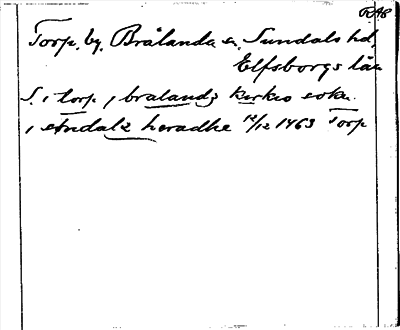 RAp
Torp, by, Brålanda sn, Sundals hd,
Elfsborgs län
S. i torp i bralandz kirkio sokn
i sundalz heradhe 12/12 1463 Torp